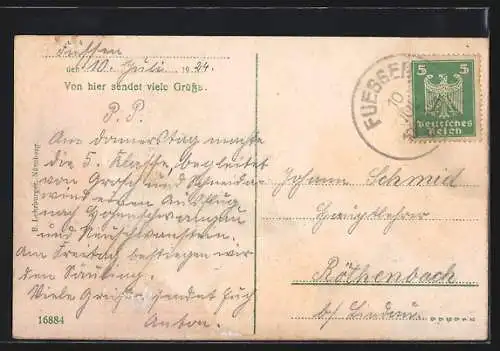 Füssen
den 10. Juli 1924.
Von hier sendet viele Grüße.
P. P.
Am Donnerstag machte
die 5. Klasse, begleitet
von Grosch und Schneider
wird einen Ausflug
nach Hohenschwangau
und Neuschwanstein.
Am Freitag bestiegen wir
den Säuling.
Viele Grüsse sendet Euch
Anton.
16884
B. Lehrburger, Nürnberg
FUESSEN
10
5 5
Deutsches
Reich
Johann Schmid
Hauptlehrer
Röthenbach
b/ Lindau